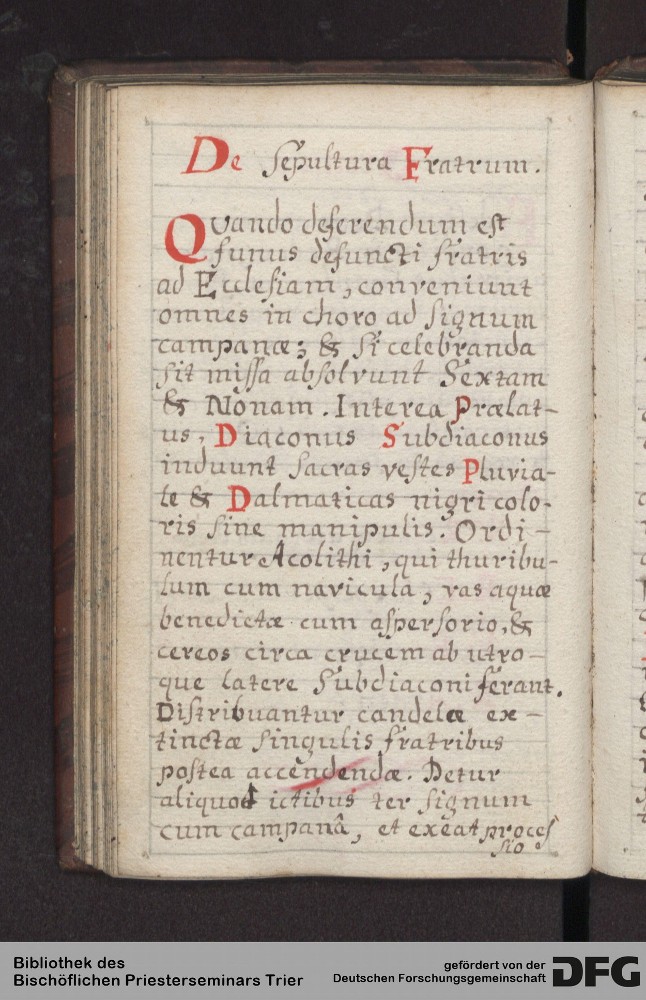 De ſepultura Fratrum.
Quando deferendum eſt
funus defuncti fratris
ad Eccleſiam, conveniunt
omnes in choro ad ſignum
campanæ; & ſi celebranda
ſit miſſa abſolvunt Sextam
& Nonam. Interea Prælat-
us, Diaconus Subdiaconus
induunt ſacras veſtes Pluvia-
le & Dalmaticas nigri colo-
ris ſine manipulis. Ordi-
nentur Acolithi, qui thuribu-
lum cum navicula, vas aquæ
benedictæ cum aſperſorio, &
cereos circa crucem ab utro-
que latere Subdiaconi ferant.
Diſtribuantur candelæ ex-
tinctæ ſingulis fratribus
poſtea accendendæ. Detur
aliquot ictibus ter ſignum
cum campanâ, et exeat proceſ
ſio
Bibliothek des
Bischöflichen Priesterseminars Trier
gefördert von der
Deutschen Forschungsgemeinschaft
DFG